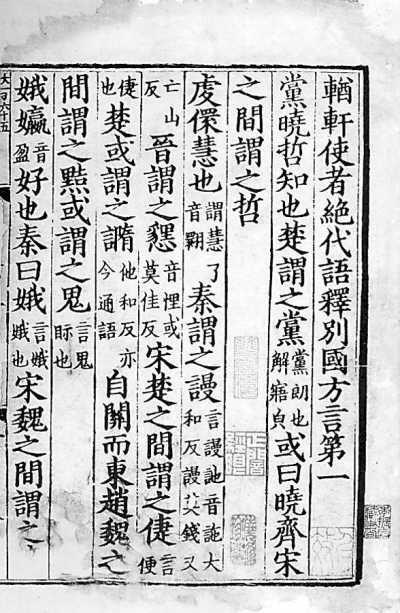 輶軒使者絕代語釋別國方言第一
黨曉哲知也楚謂之黨黨朗也解寤貞或曰曉齊宋
之間謂之哲
虔儇慧也謂慧了音翾秦謂之謾言謾訑音訑大和反謾莫錢又
亡山反晉謂之㦟音悝或莫佳反宋楚之間謂之倢言便
倢也楚或謂之䜏他和反亦今通語自關而東趙魏之
間謂之黠或謂之鬼言鬼眎也
娥㜲音盈好也秦曰娥言娥娥也宋魏之間謂之
大一百六十五